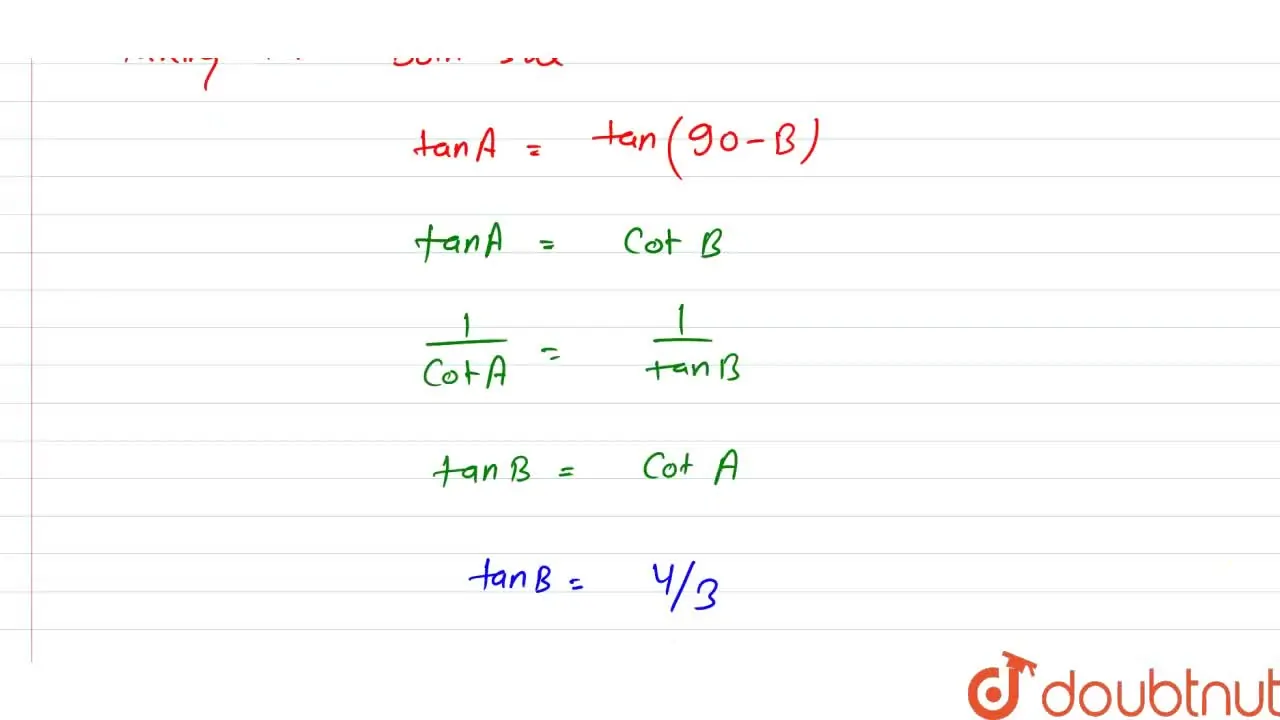 tan A = tan (90 - B)
tan A = Cot B
1/Cot A = 1/tan B
tan B = Cot A
tan B = 4/3
doubtnut